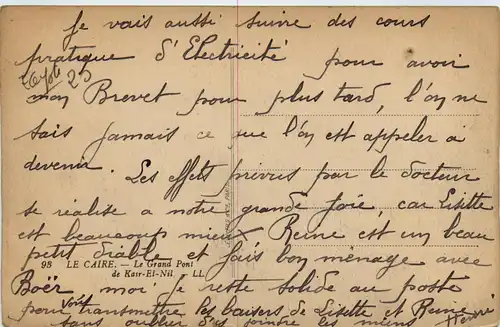 Je vais aussi suivre des cours
pratique d'Electricité pour avoir
mon Brevet pour plus tard, l'on ne
sais Jamais ce que l'on est appeler a
devenir. Les effets prévus par le docteur
se réalise a notre grande Joie, car Lisette
est beaucoup mieux Reine est un beau
petit diable et fais bon ménage avec
98 LE CAIRE. — Le Grand Pont
de Kasr-El-Nil. LL
Boër moi je reste solide au poste
pour vous transmettre les baisers de Lisette et Reine
sans oublier d'y joindre les miens